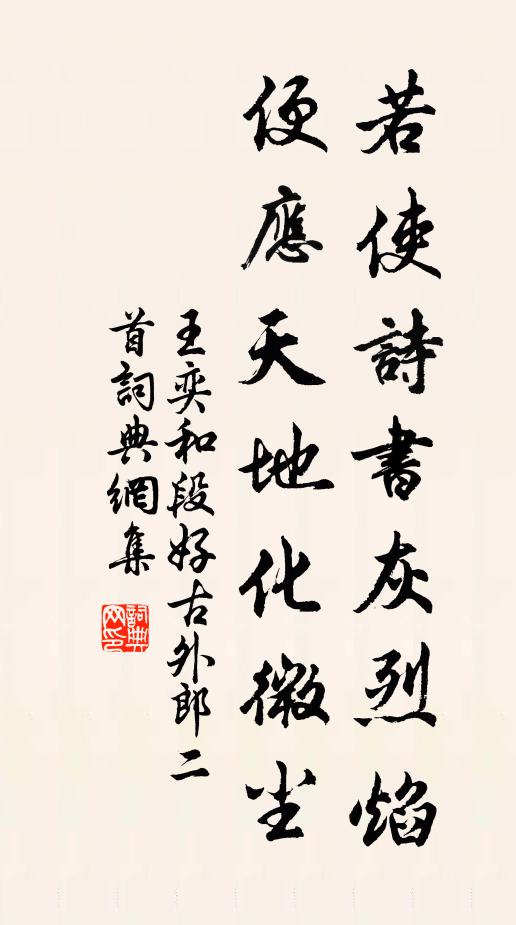 若使詩書灰烈焰
便應天地化微尘
王奕和段好古外郎二
首詞典網集
詞典
网印